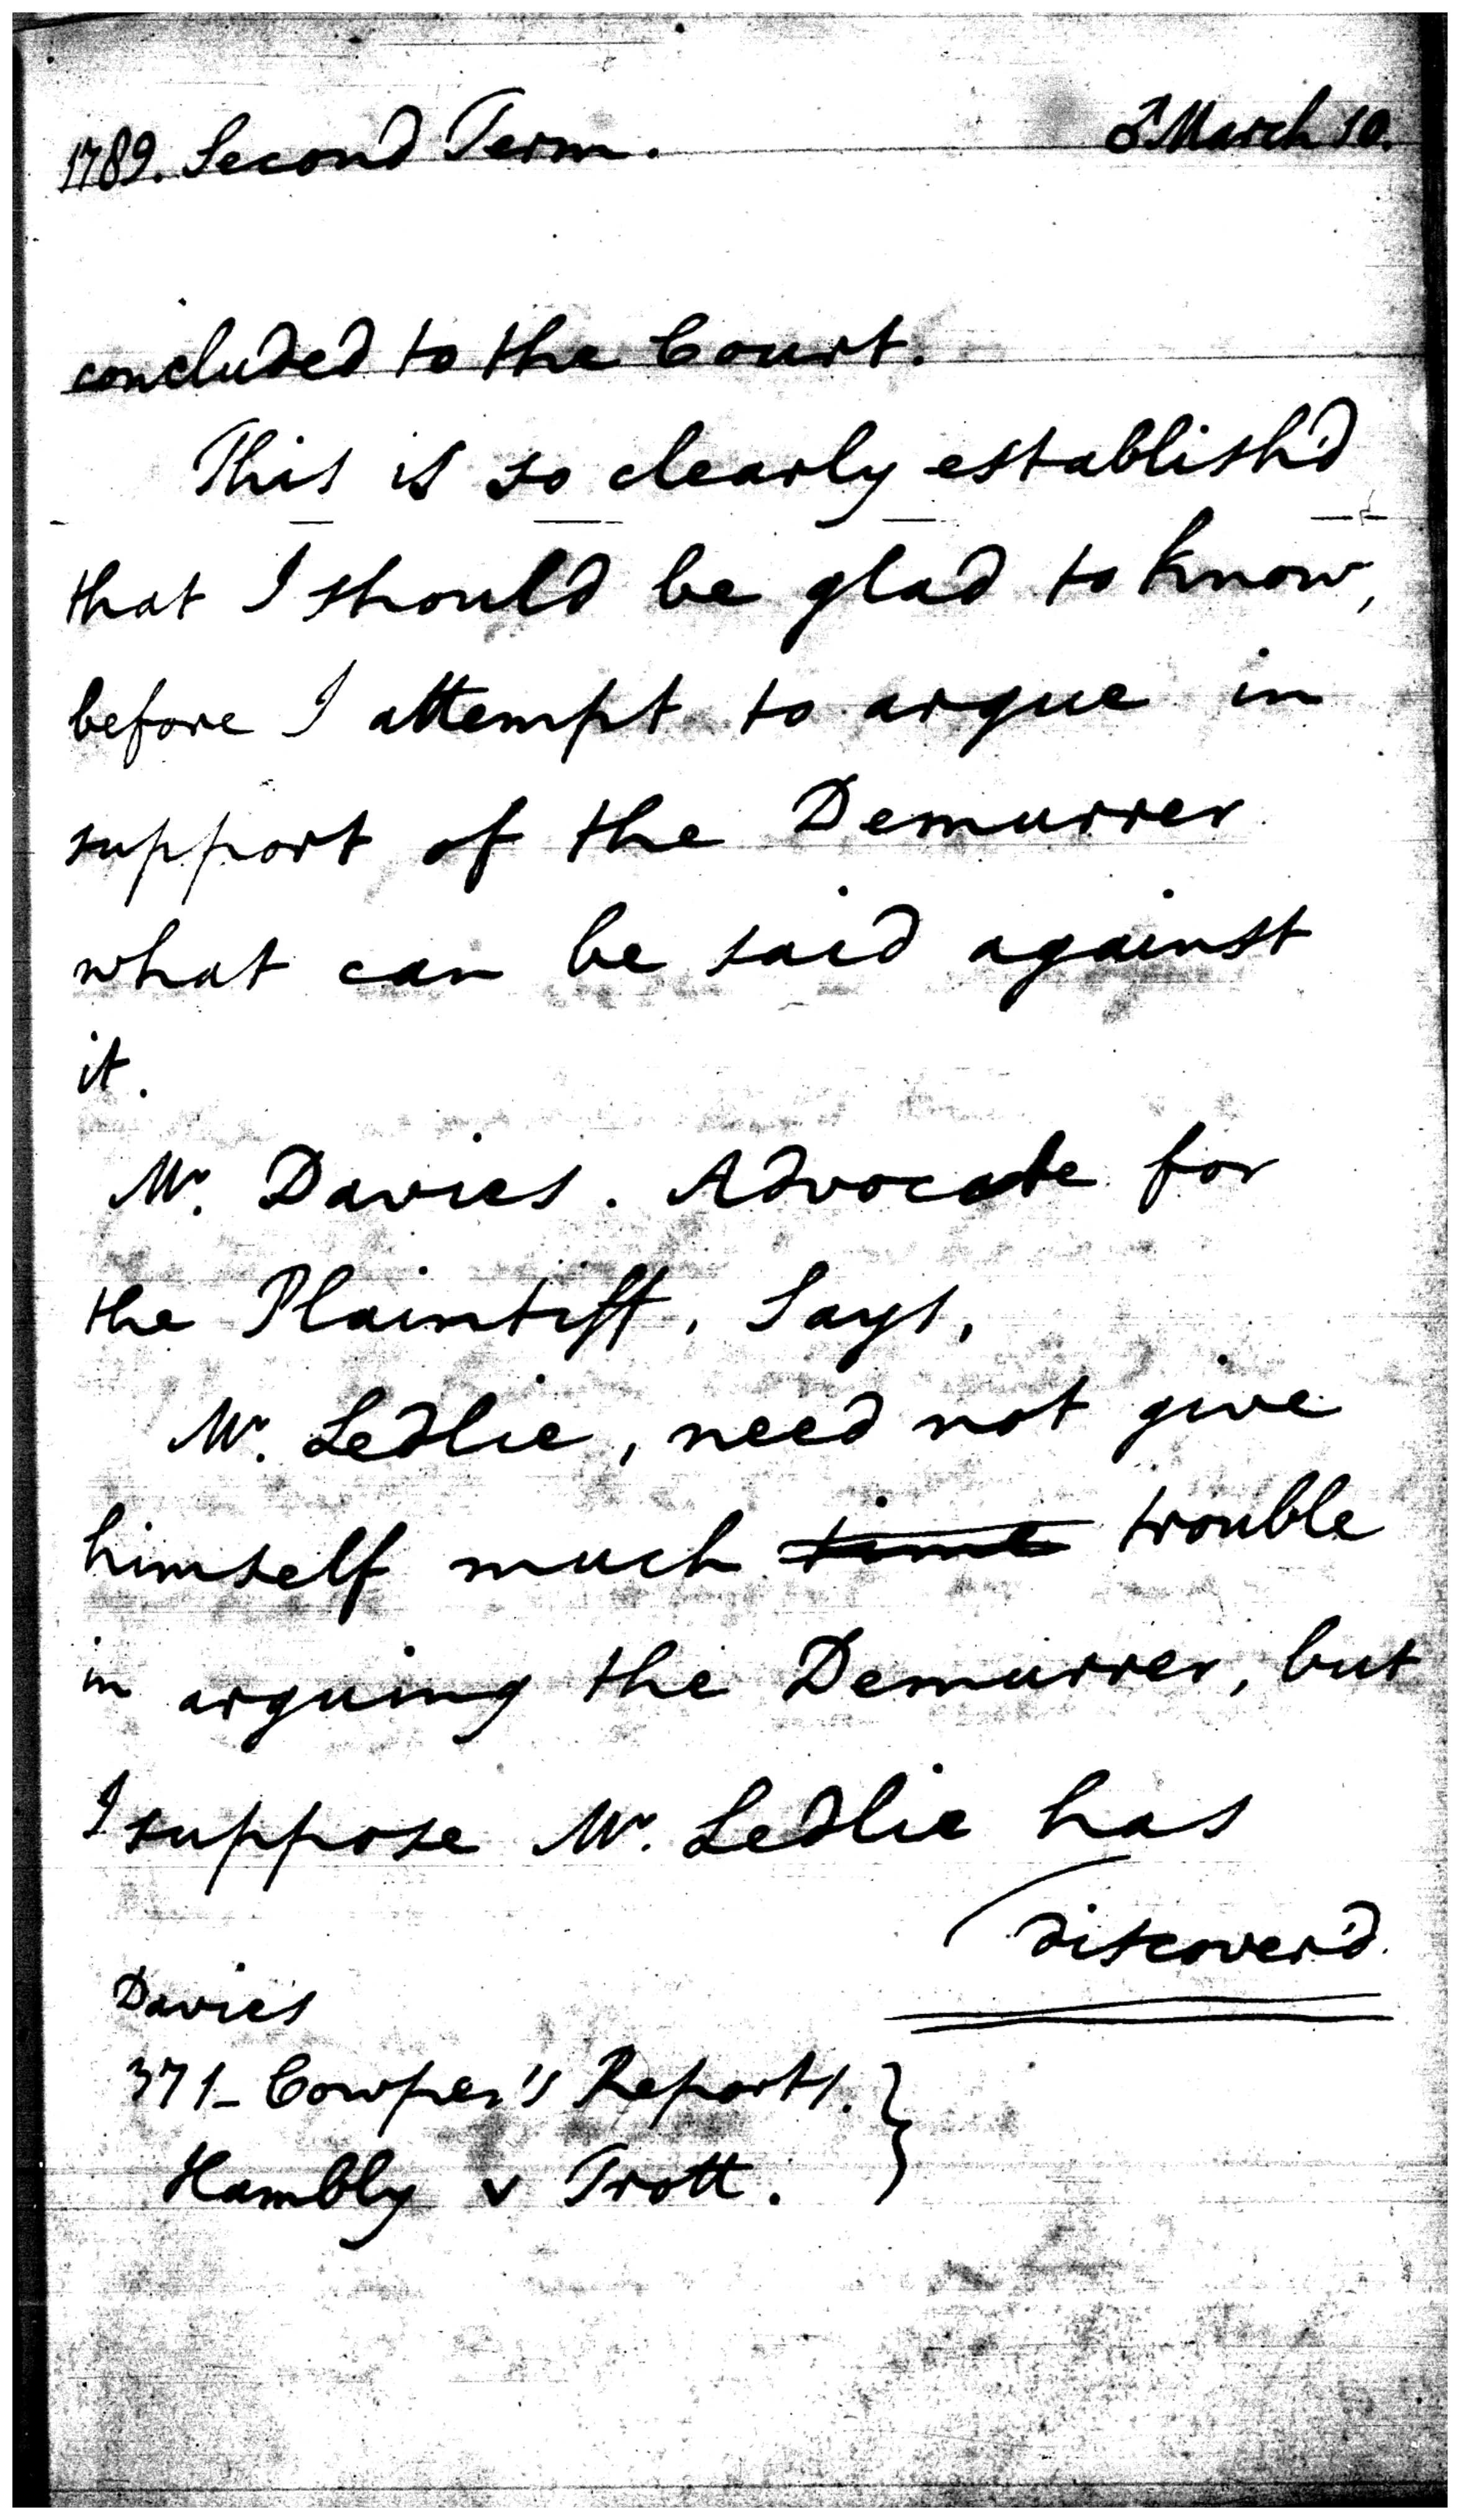 1789. Second Term. ♂ March 10.
concluded to the Court.
This is so clearly establish'd
that I should be glad to know,
before I attempt to argue in
support of the Demurrer
what can be said against
it.
Mr. Davies. Advocate for
the Plaintiff, Says,
Mr. Ledlie, need not give
himself much time trouble
in arguing the Demurrer, but
I suppose Mr. Ledlie has
discover'd
Davies
371_ Cowper's Reports.
Hambly v Trott.